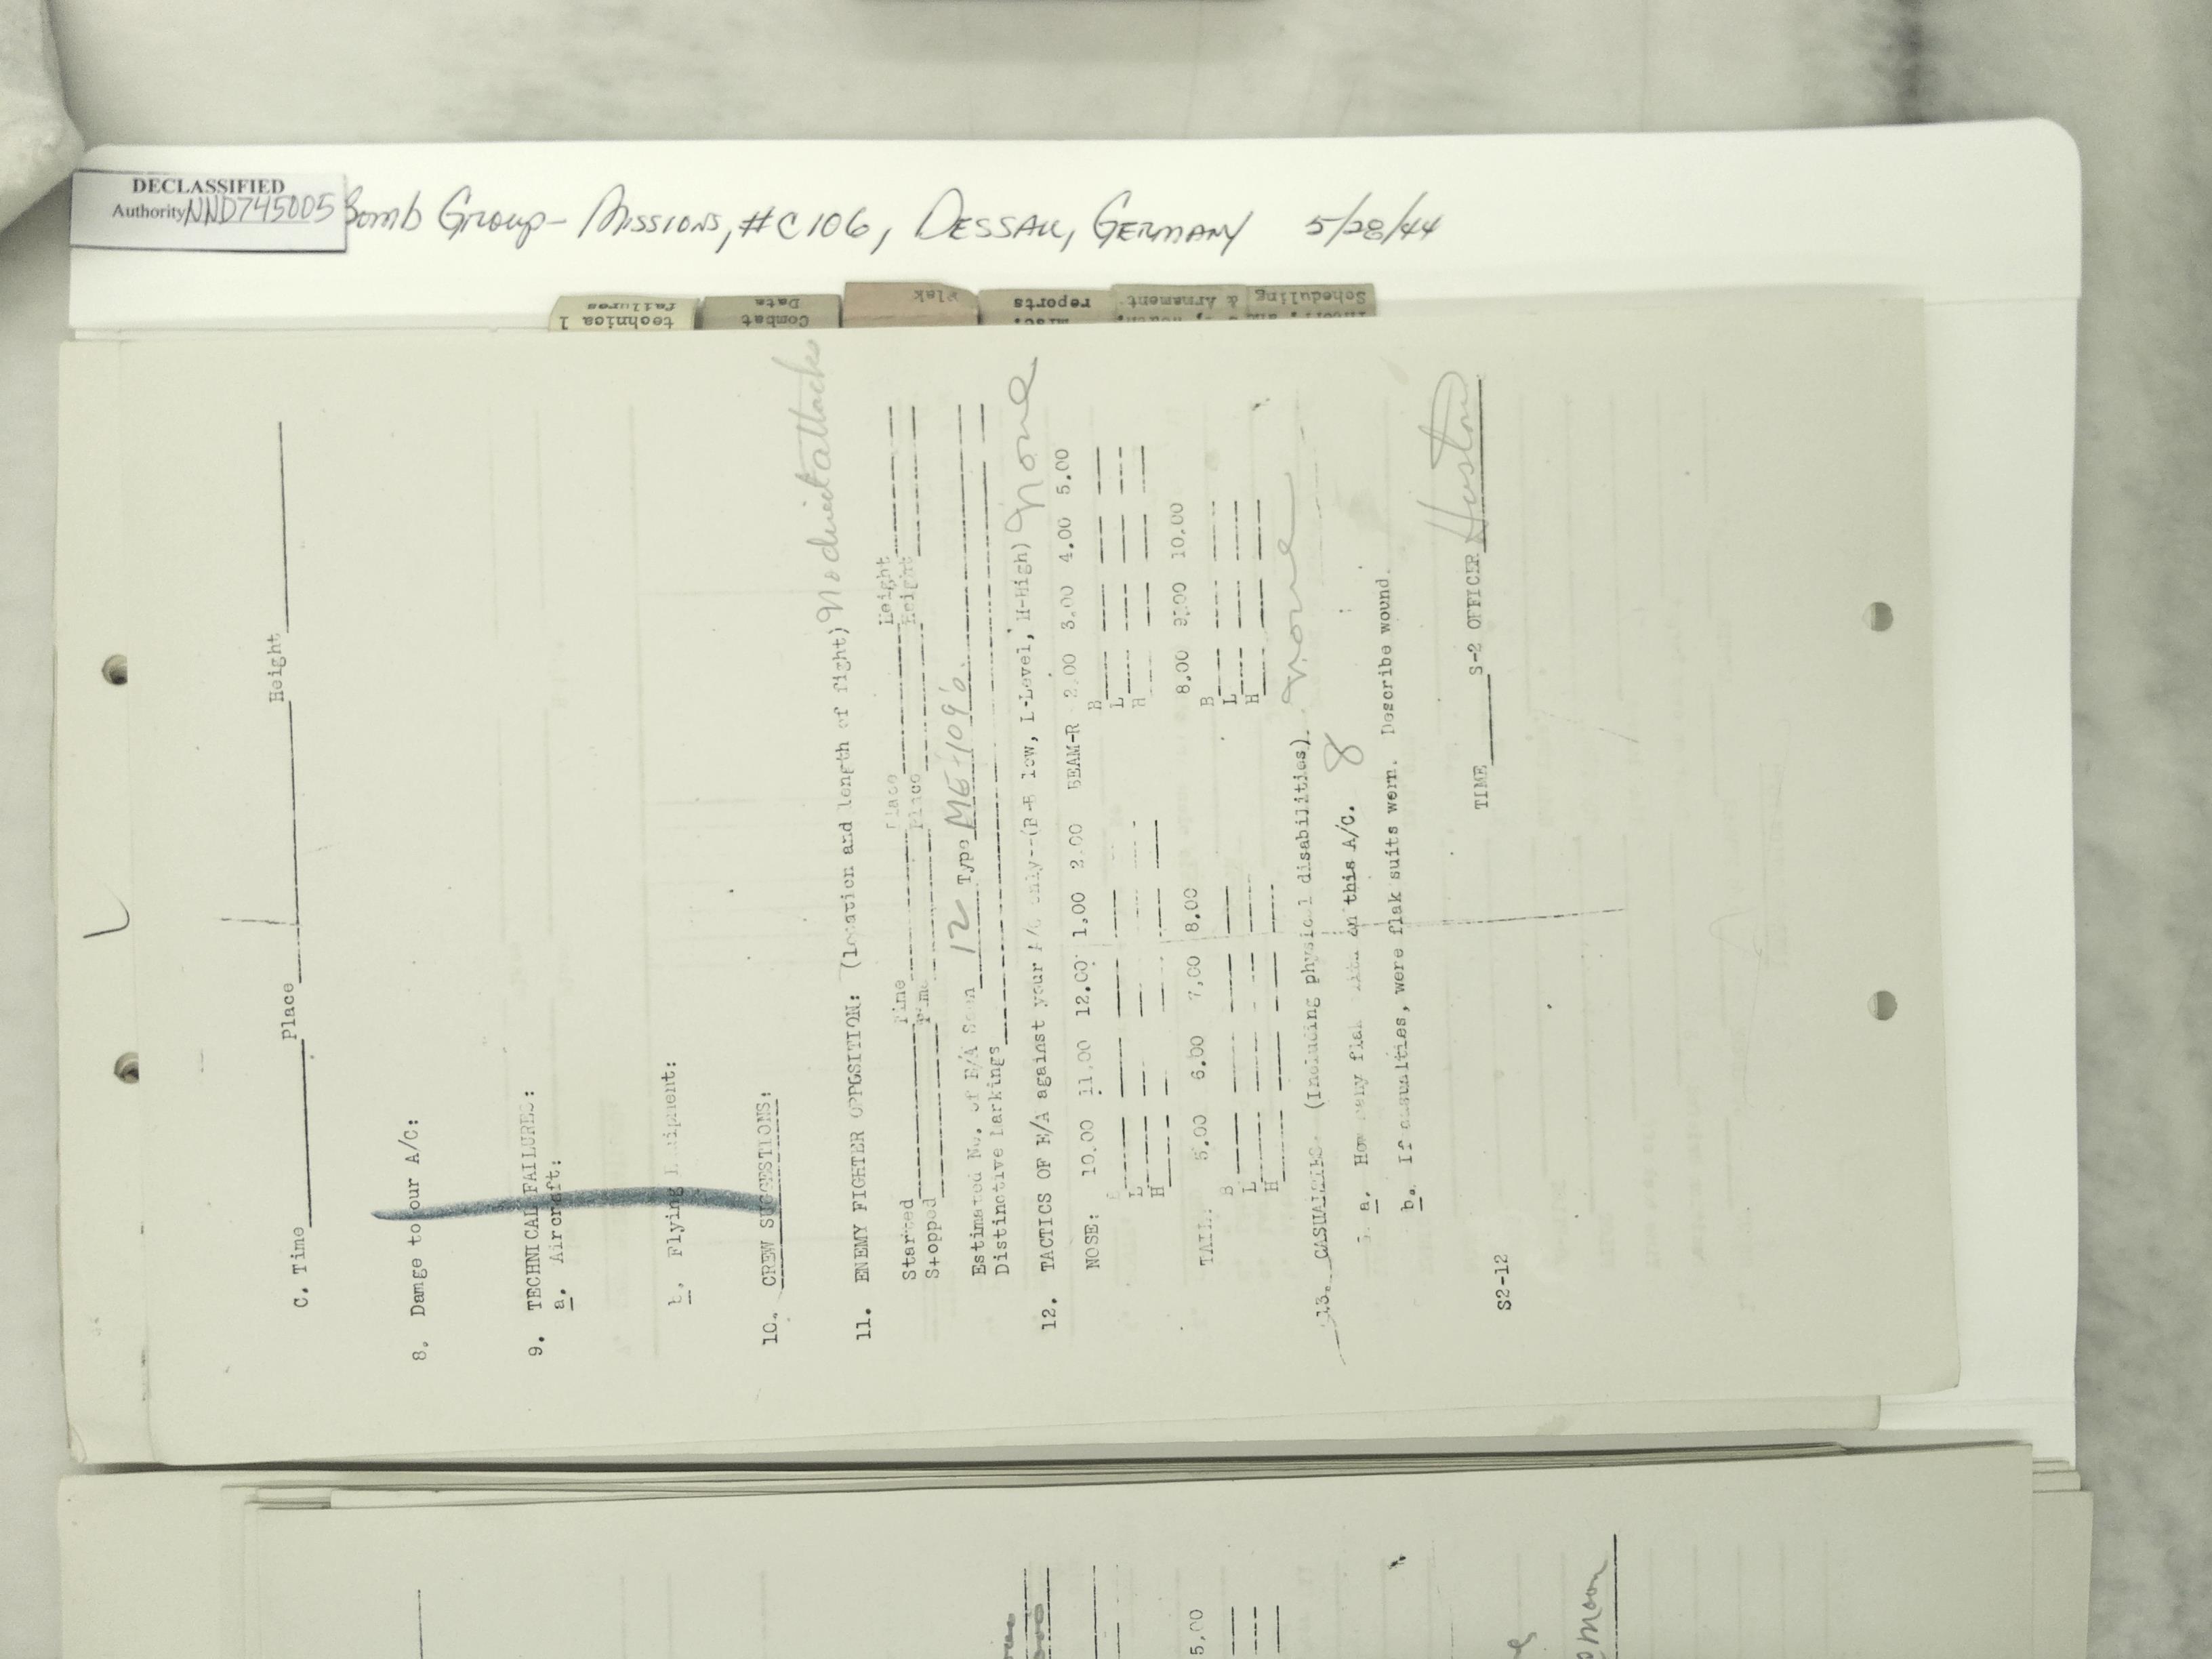 DECLASSIFIED
Authority NND745005
Bomb Group - Missions, #C106, DESSAU, GERMANY 5/28/44
technical failures
Combat Data
Flak
Misc. reports
& Armament
Scheduling
C. Time Place Height
8. Damge to our A/C:
9. TECHNICAL FAILURES:
a. Aircraft:
b. Flying Equipment:
10. CREW SUGGESTIONS:
11. ENEMY FIGHTER OPPOSITION: (location and length of fight) No direct attacks
Started Time Place Height
Stopped Time Place Height
Estimated No. of E/A Seen 12 Type ME-109's
Distinctive Markings
12. TACTICS OF E/A against your A/C only--(B-B low, L-Level, H-High) None
NOSE: 10.00 11.00 12.00 1.00 2.00 BEAM-R 2.00 3.00 4.00 5.00
B
L L
H H
TAIL: 5.00 6.00 7.00 8.00 8.00 9.00 10.00
B B
L L
H H
13. CASUALTIES. (Including physical disabilities). None
a. How many flak suits on this A/C. 8
b. If casualties, were flak suits worn. Describe wound.
TIME S-2 OFFICER Huston
S2-12
5.00